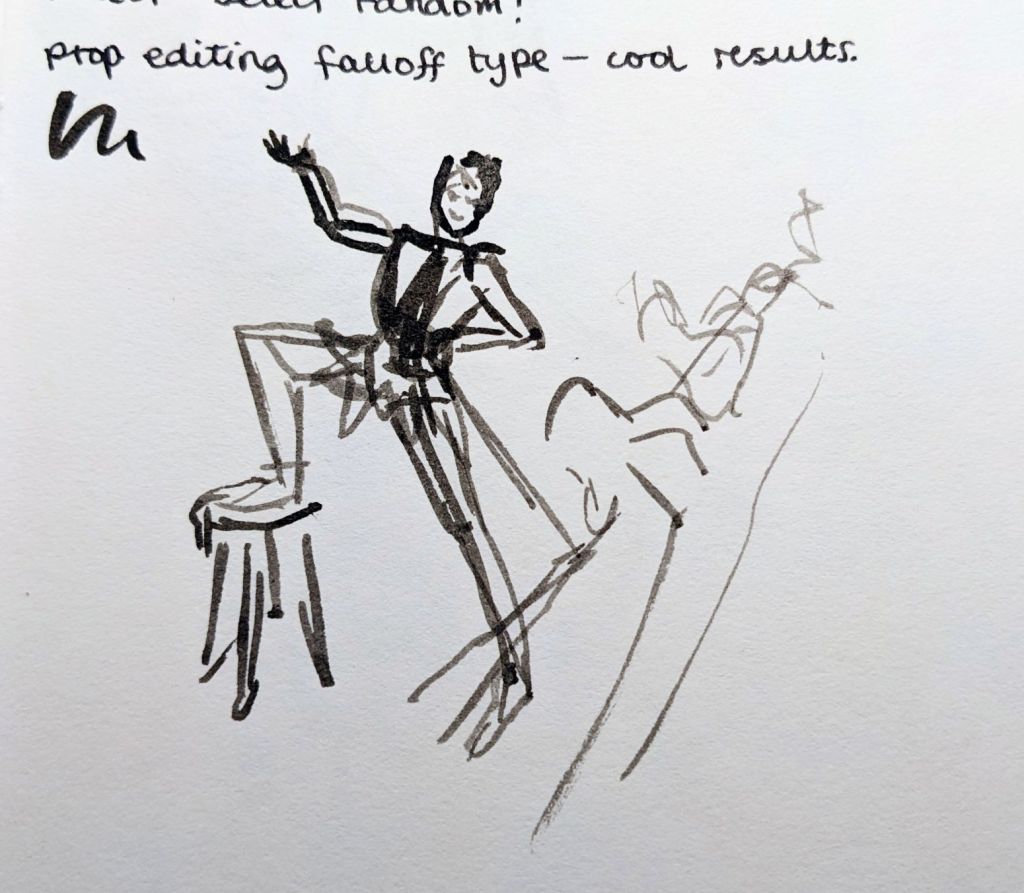 select random!
prop editing falloff type – cool results.